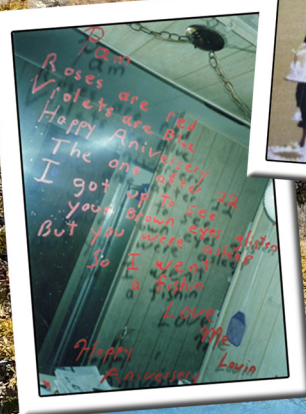 Pam
Roses are red
Violets are Blue
Happy Aniversery
The one after 22
I got up to see
your Brown eyes glisten
But you were asleep
So I went
a fishin
Love
Me
Lovin
Happy
Aniversery